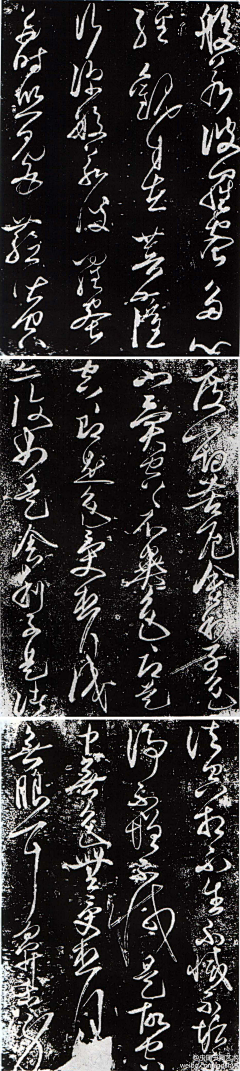 般若波羅蜜多心
經觀自在菩薩
行深般若波羅蜜
多時照見五蘊皆空
度一切苦厄舍利子色
不異空空不異色色即是
空空即是色受想行識
亦復如是舍利子是諸
法空相不生不滅不垢
不淨不增不減是故空
中無色無受想行
無眼耳鼻舌身